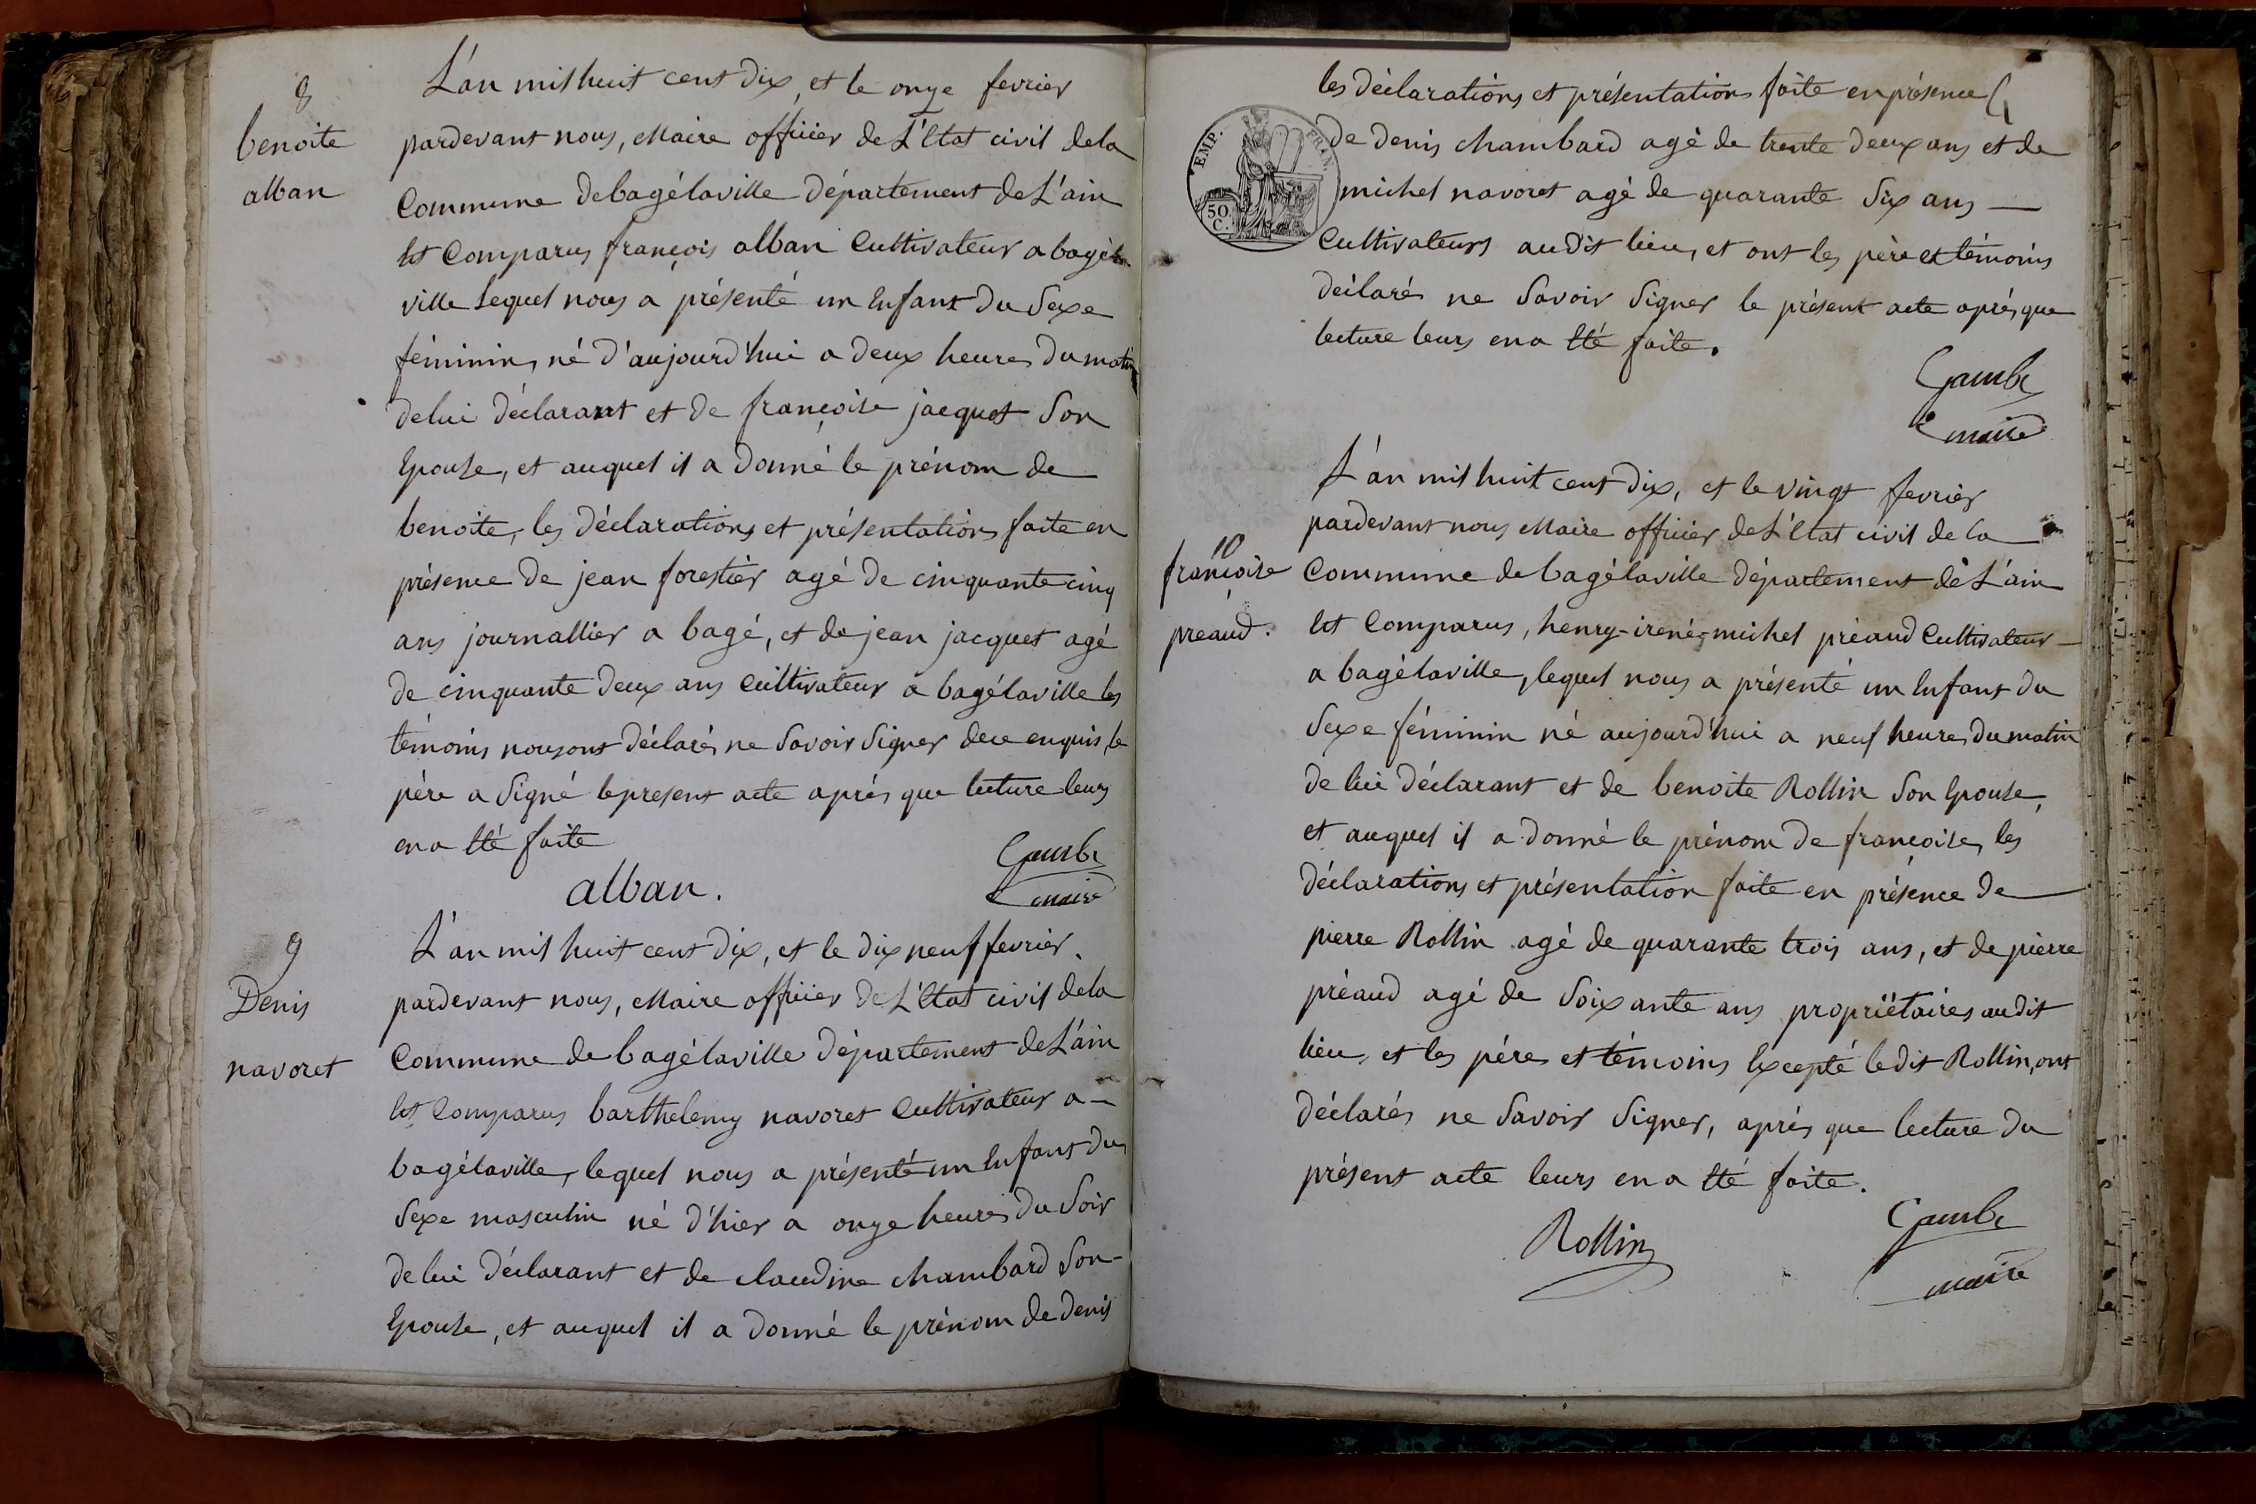 8
benoite
alban
L'an mil huit cent dix, et le onze fevrier
pardevant nous, Maire officier de L'Etat civil dela
Commune debagélaville département de L'ain
Est Comparus françois alban Cultivateur a bagéla
ville Lequel nous a présenté un Enfant Du Sexe
féminin, né D'aujourd'hui a deux heures Du matin
delui déclarant et de françoise jacquet Son
Epouse, et auquel il a Donné le prénom de
benoite, les déclarations et présentations faite en
présence de jean forestier agé de cinquante cinq
ans journallier a bagé, et de jean jacquet agé
de cinquante deux ans Cultivateur a bagélaville les
témoins nousont déclarés ne Savoir Signer dece enquis, le
père a Signé leprésent acte après que lecture leurs
en a Eté faite
alban.
Gambe
maire
9
Denis
navoret
L'an mil huit cent dix, et le dix neuf fevrier.
pardevant nous, Maire officier de L'Etat civil dela
Commune de bagélaville département de L'ain
Est Comparus barthelemy navoret Cultivateur a
bagélaville, lequel nous a présenté un Enfant du
Sexe masculin né d'hier a onze heures Du Soir
delui déclarant et de claudine chambard Son
Epouse, et auquel il a donné le prénom de denis
les déclarations et présentations faite en présence
de denis chambard agé de trente deux ans et de
michel navoret agé de quarante Six ans
Cultivateurs audit lieu, et ont les père et témoins
déclarés ne Savoir Signer le présent acte après que
lecture leurs en a Eté faite.
EMP. FRAN.
50
C.
Gambe
maire
10
françoise
préaud.
L'an mil huit cent dix, et le vingt fevrier
pardevant nous Maire officier de L'Etat civil de la
Commune de bagélaville département de L'ain
Est Comparus, henry-irené-michel préaud Cultivateur
a bagélaville, lequel nous a présenté un Enfant du
Sexe féminin né aujourd'hui a neuf heures du matin
de lui déclarant et de benoite Rollin Son Epouse,
et auquel il a donné le prénom de françoise, les
déclarations et présentation faite en présence de
pierre Rollin agé de quarante trois ans, et de pierre
préaud agé de Soixante ans propriétaires audit
lieu, et les père et témoins Excepté ledit Rollin, ont
déclarés ne Savoir Signer, après que lecture du
présent acte leurs en a Eté faite.
Rollin
Gambe
maire